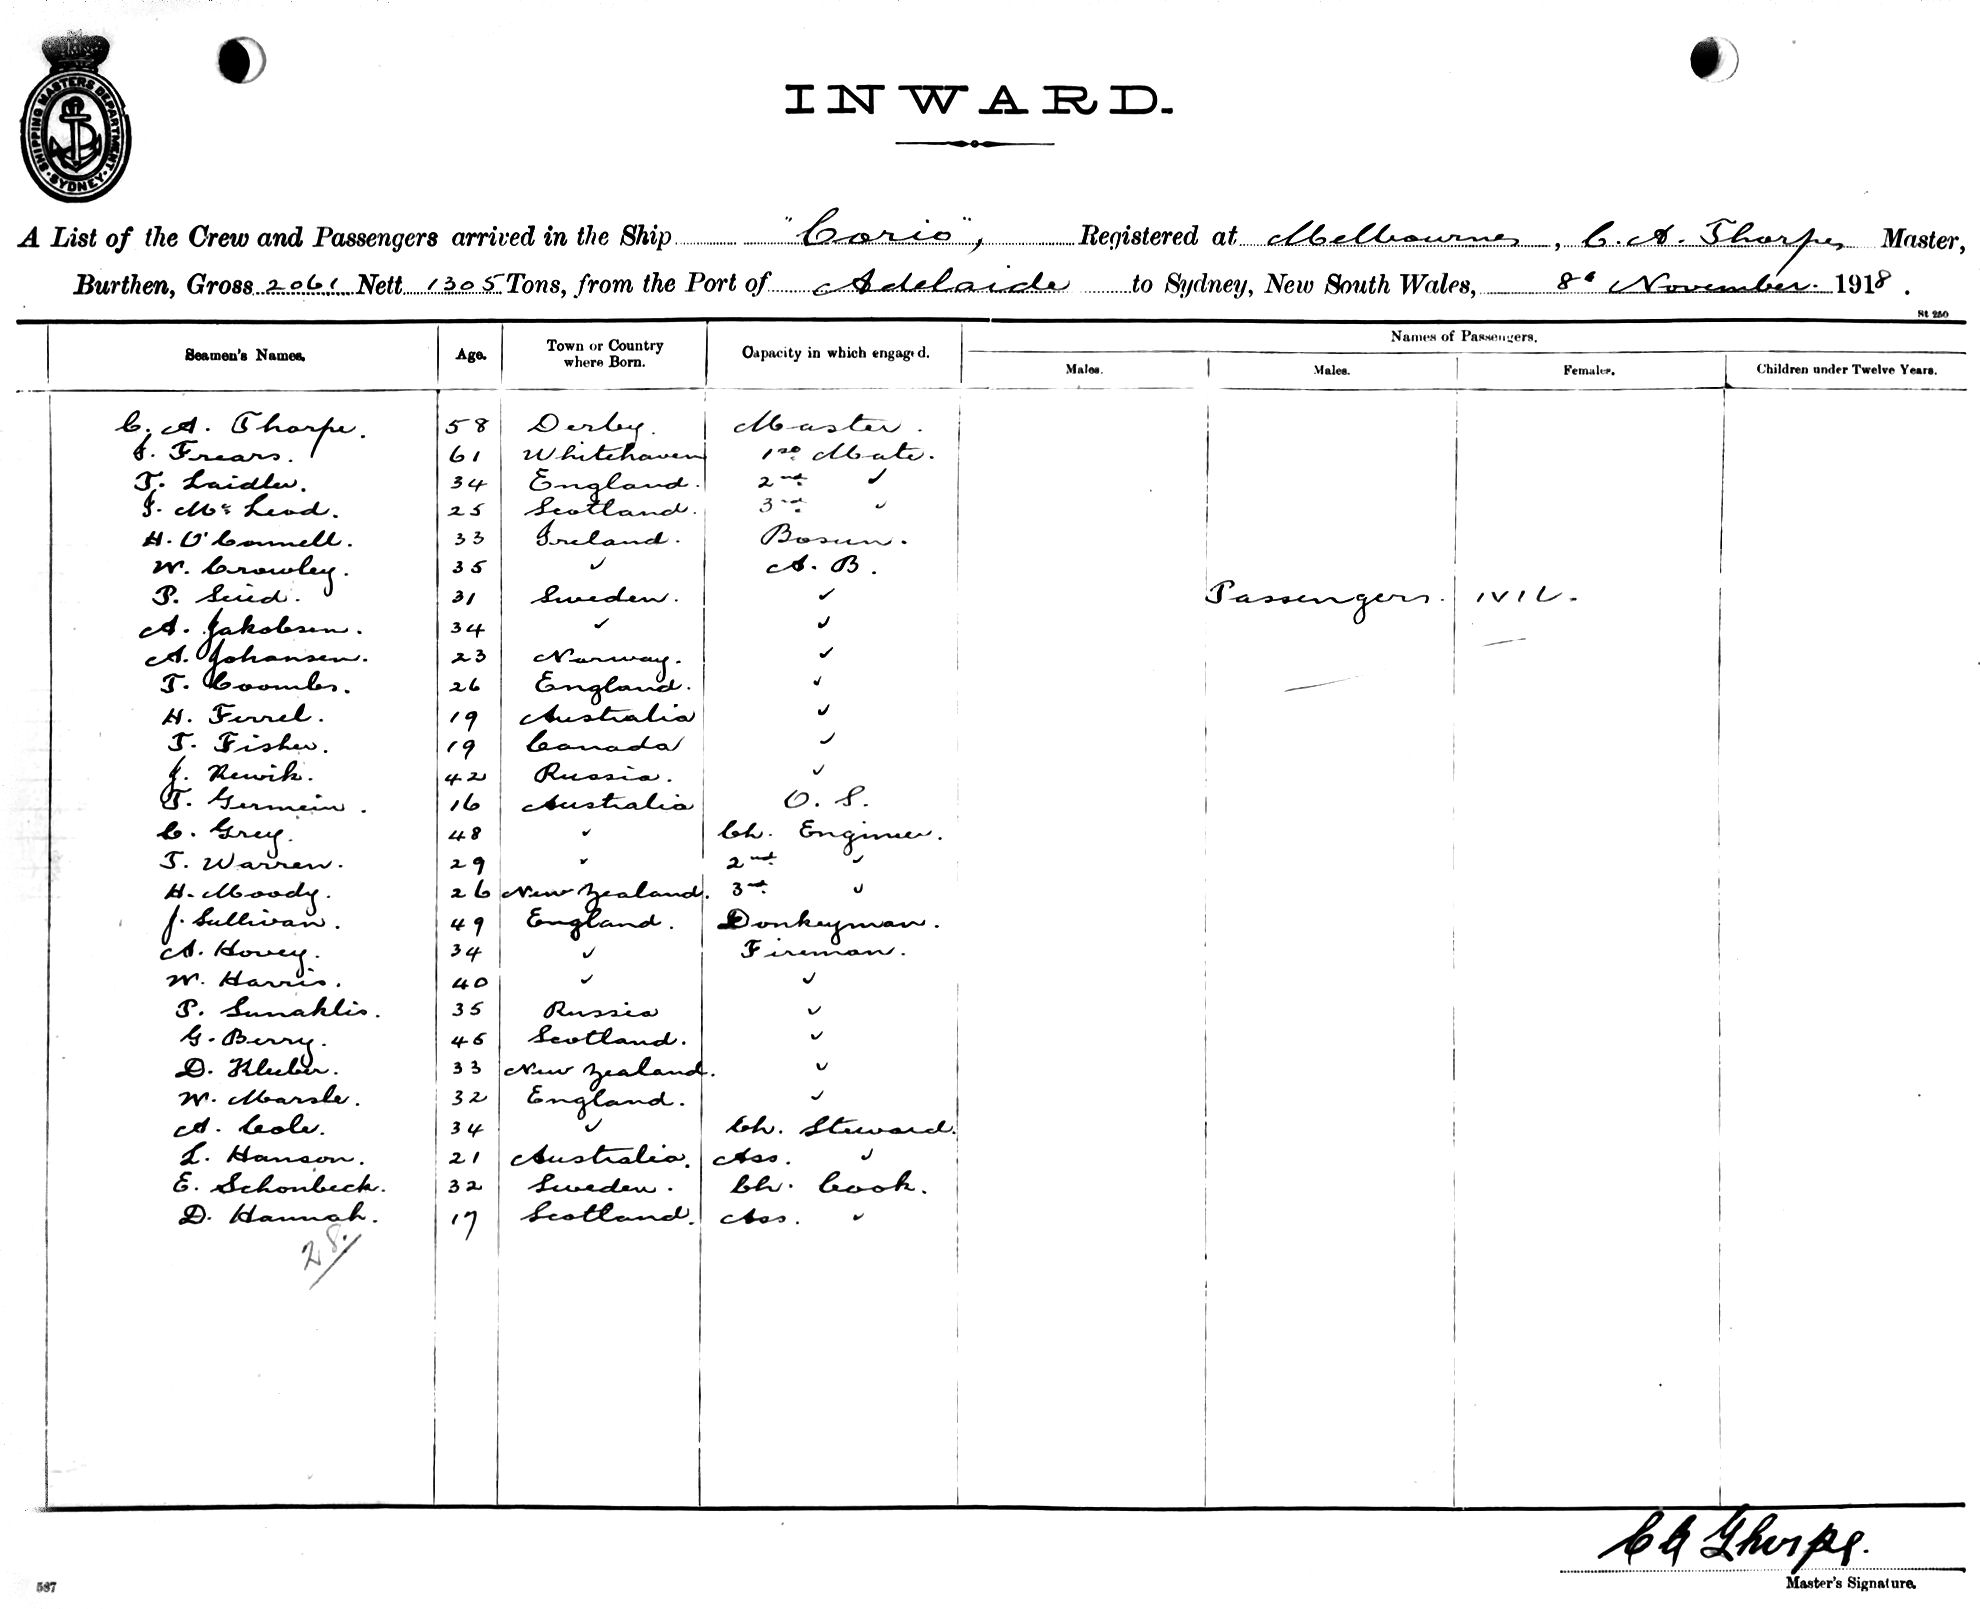 SHIPPING MASTERS DEPARTMENT · SYDNEY ·
INWARD.
A List of the Crew and Passengers arrived in the Ship "Corio", Registered at Melbourne, C. A. Thorpe, Master,
Burthen, Gross 2061 Nett 1305 Tons, from the Port of Adelaide to Sydney, New South Wales, 8th November. 1918.
St 250
Seamen's Names. Age. Town or Country where Born. Capacity in which engaged. Names of Passengers.
Males. Males. Females. Children under Twelve Years.
C. A. Thorpe. 58 Derby. Master.
J. Frears. 61 Whitehaven 1st Mate.
T. Laidler. 34 England. 2nd "
J. McLeod. 25 Scotland. 3rd "
H. O'Connell. 33 Ireland. Bosun.
W. Crowley. 35 " A. B.
P. 31 Sweden. "
Passengers. NIL.
A. Jakobsen. 34 " "
A. Johansen. 23 Norway. "
T. Coombes. 26 England. "
H. Ferrel. 19 Australia "
T. Fisher. 19 Canada "
J. Rewik. 42 Russia. "
T. Germein. 16 Australia O. S.
C. Grey. 48 " Ch. Engineer.
T. Warren. 29 " 2nd "
H. Moody. 26 New Zealand. 3rd "
J. Sullivan. 49 England. Donkeyman.
A. Hovey. 34 " Fireman.
W. Harris. 40 " "
P. Sunaklis. 35 Russia "
G. Berry. 45 Scotland. "
D. Kleber. 33 New Zealand. "
W. Marsle. 32 England. "
A. Cole. 34 " Ch. Steward.
L. Hanson. 21 Australia. Ass. "
E. Schonbeck. 32 Sweden. Ch. Cook.
D. Hannah. 17 Scotland. Ass. "
28.
C A Thorpe.
Master's Signature.
587